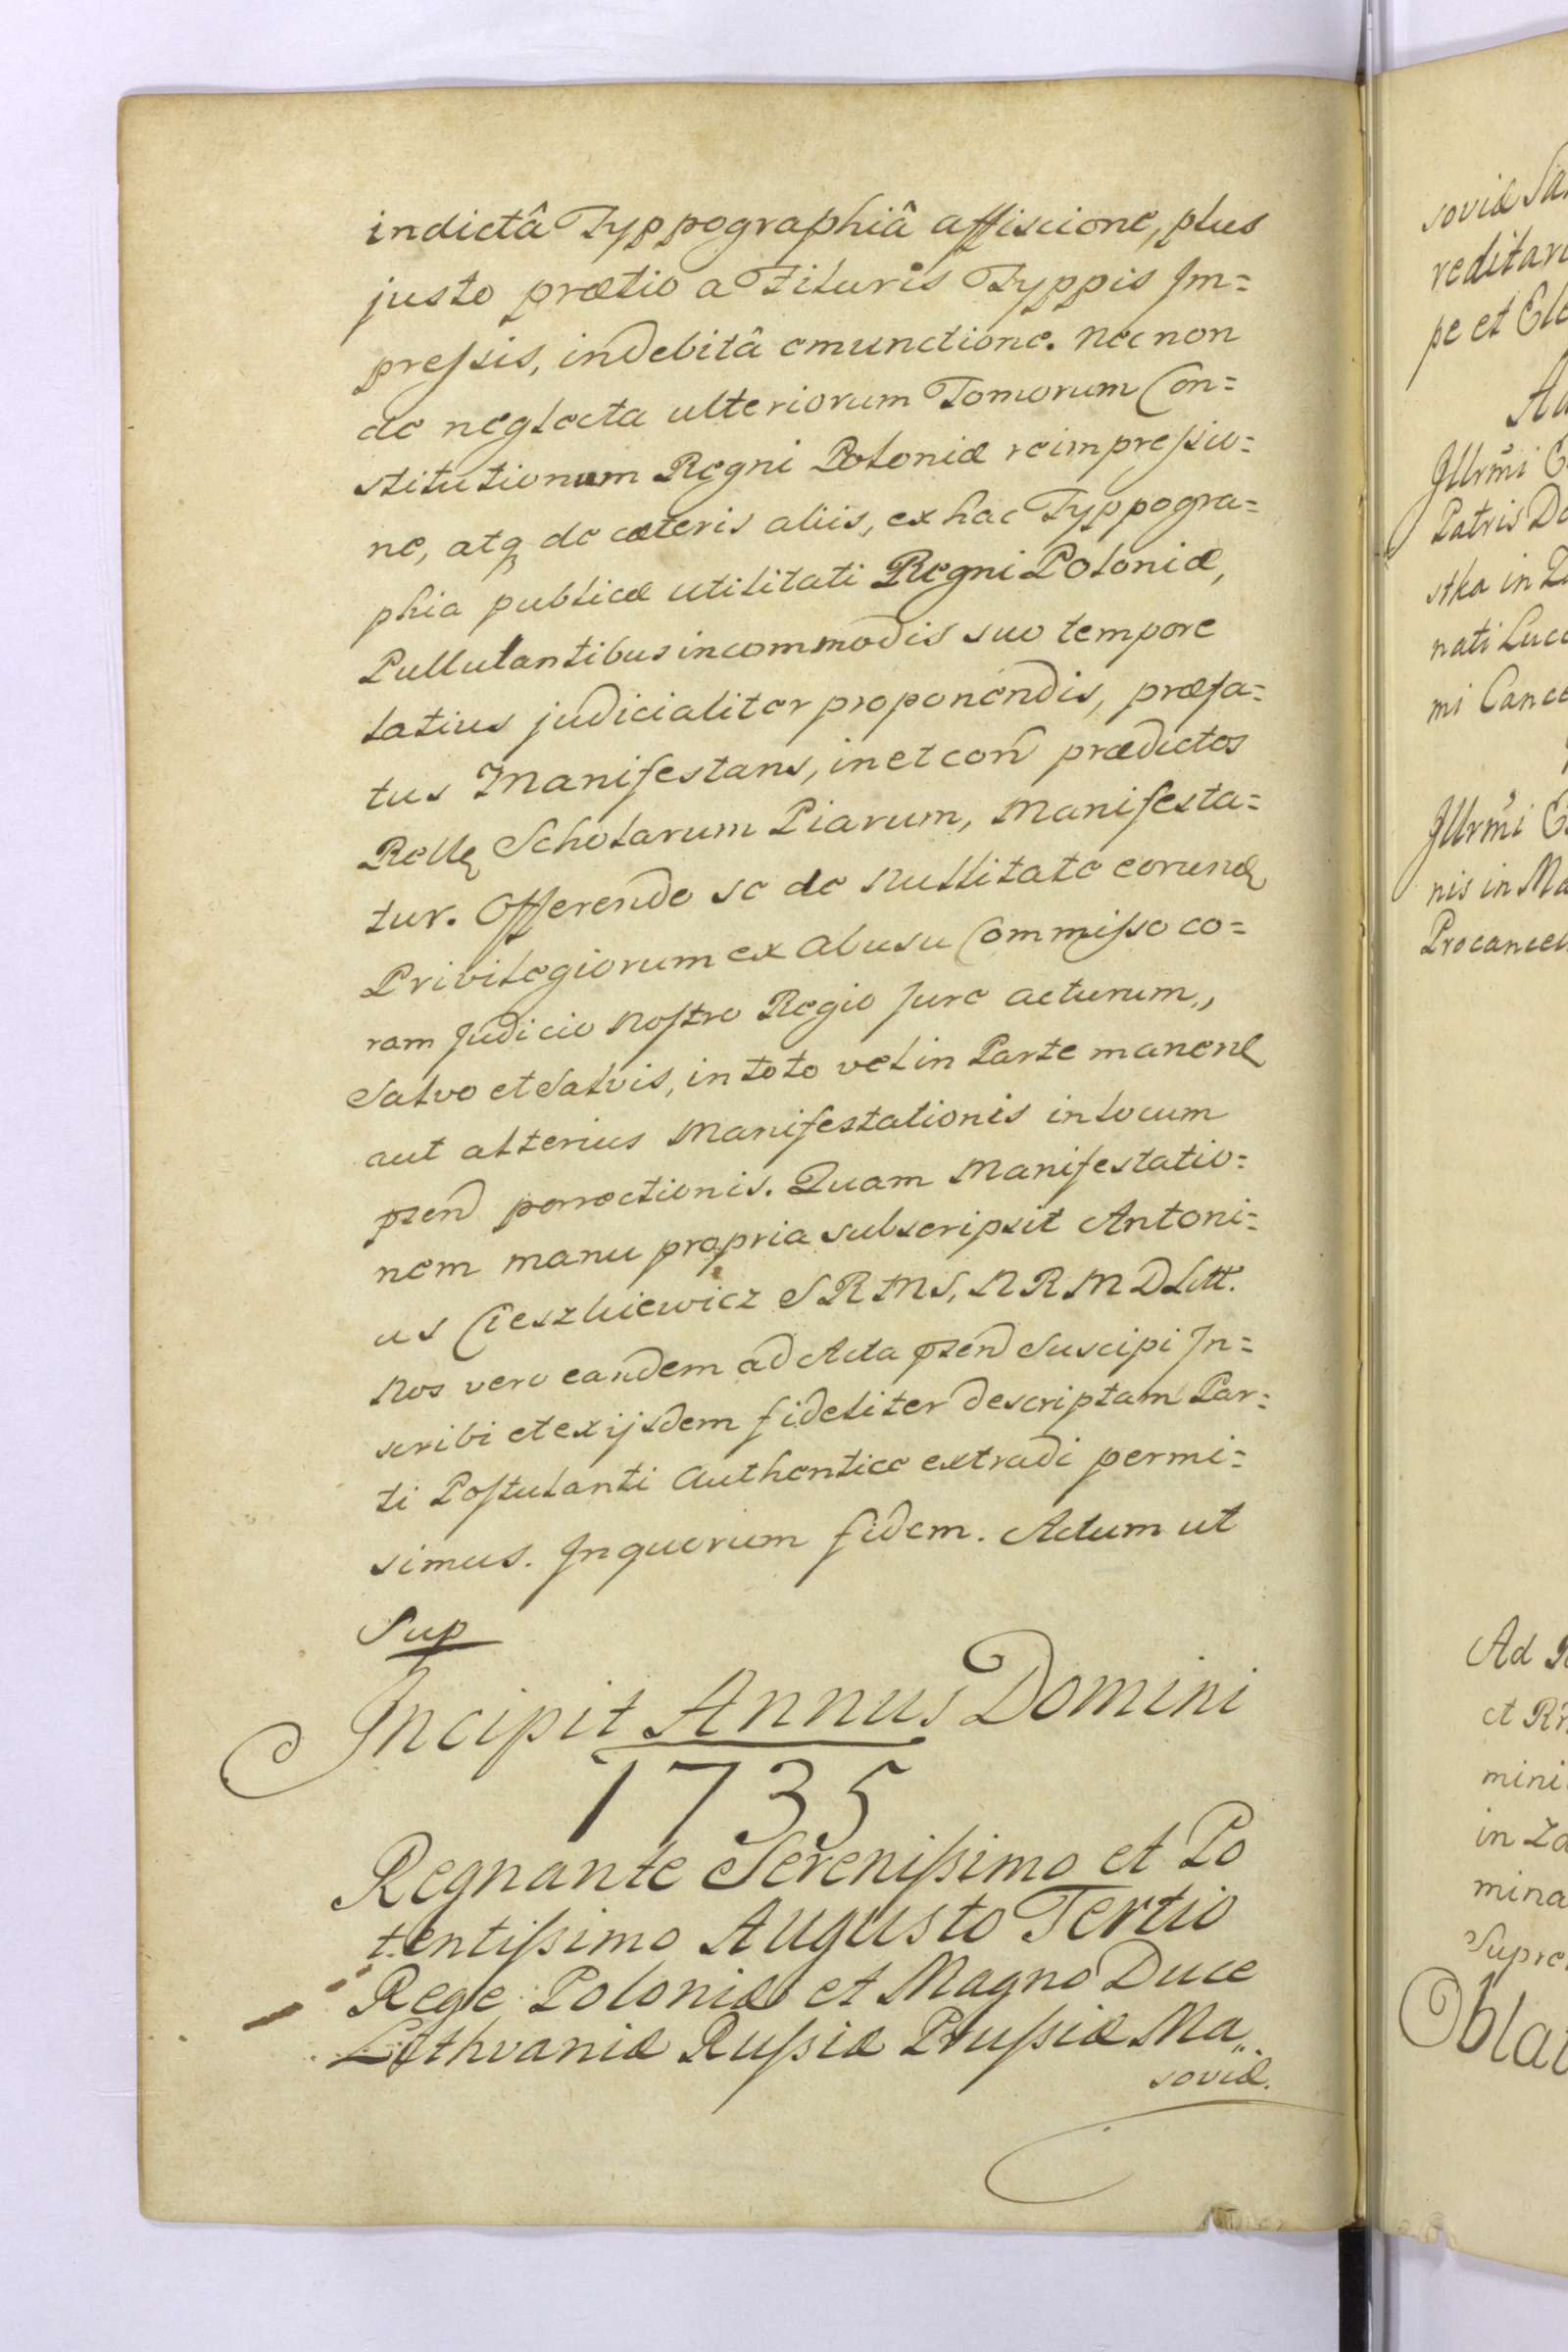 indictâ Typpographiâ affiscione, plus
justo prætio a Tituris Typpis Im=
preſsis, indebitâ emunctione. Nec non
de neglecta ulteriorum Tomorum Con=
stitutionum Regni Poloniæ reimpreſsio=
ne, atq de cæteris aliis, ex hac Typpogra=
phia publicæ utilitati Regni Poloniæ,
Pullulantibus incommodis suo tempore
latius judicialiter proponendis, præfa=
tus Manifestans, in et con prædictos
Rellę Scholarum Piarum, Manifesta=
tur. Offerendo se de Nullitate eorund
Privilegiorum ex abusu Commiſso co=
ram Judicio Noſtro Regio Jure acturum,,
Salvo et Salvis, in toto vel in Parte manend
aut alterius Manifestationis in locum
pzen porrectionis. Quam Manifestatio=
nem manu propria subscripsit Antoni=
us Cieszkiewicz S R M S, N R M D Litt.
Nos vero eandem ad Acta pzen Suscipi In=
scribi et ex ijsdem fideliter descriptam Par=
ti Poſtulanti Authentice extradi permi=
simus. In quorum fidem. Actum ut
Sup
Incipit Annus Domini
1735
Regnante Sereniſsimo et Po
tentiſsimo Augusto Tertio
Rege Poloniæ et Magno Duce
Lithvaniæ Ruſsiæ Pruſsiæ Ma,,
soviæ.
soviæ
reditari
pe et Ele
Ad
Illrmi
Patris
stka in
nati Luce
mi Cance
Illrmi
nis in Ma
Procancel
Ad
et
mini
in
mina
Supre
Oblat